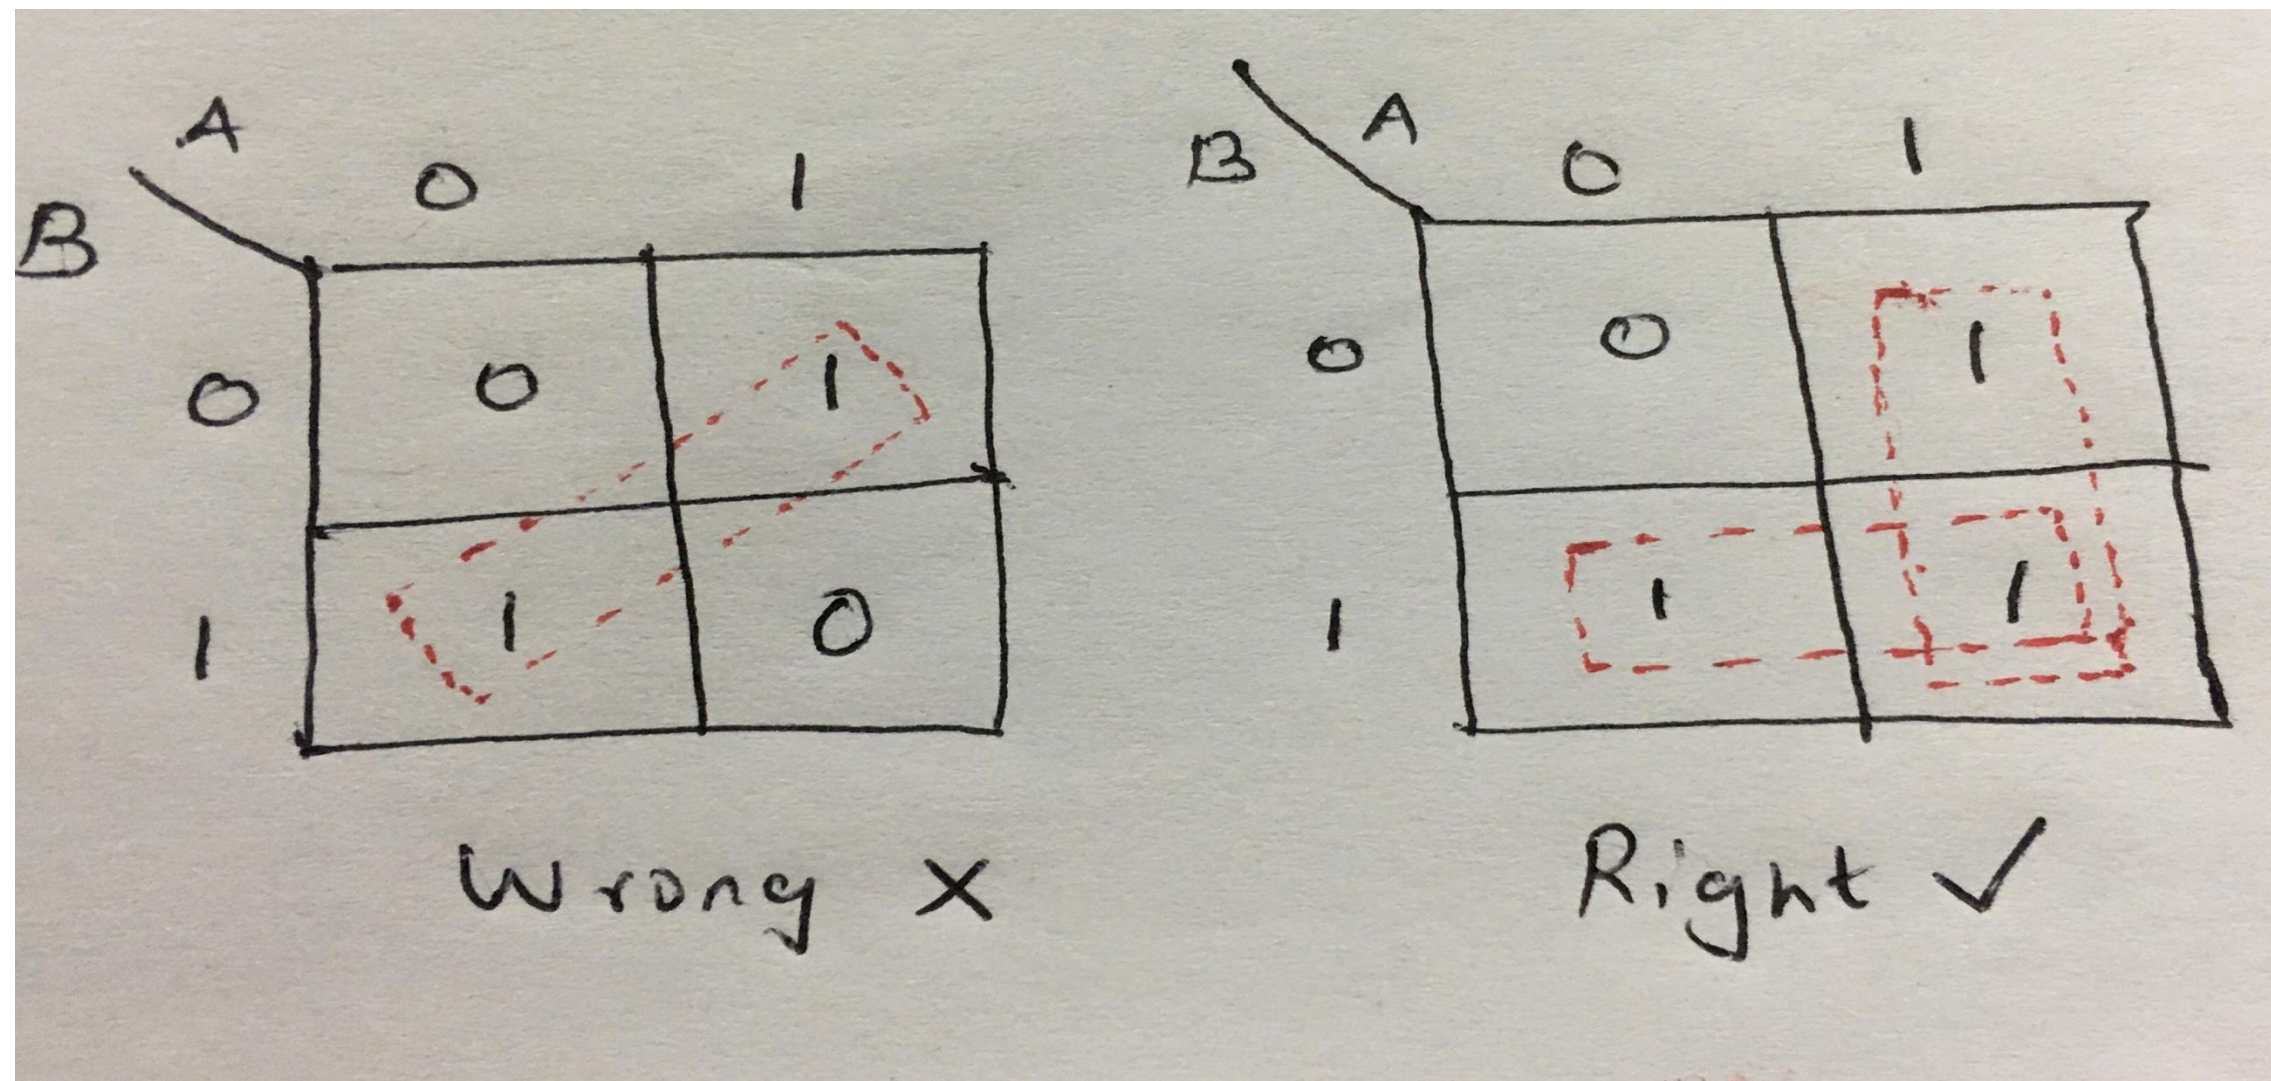 A
B 0 1
0 0 1
1 1 0
Wrong X
B A 0 1
0 0 1
1 1 1
Right ✓